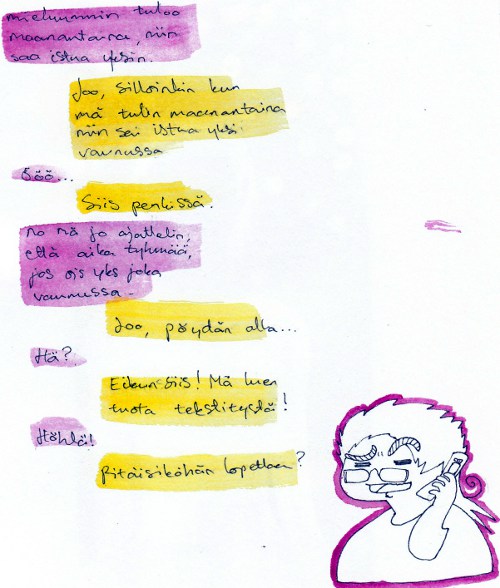 mieluummin tuloo
maanantaina, niin
saa istua yksin.
Joo, silloinkin kun
mä tulin maanantaina
niin sai istua yksi.
vaunussa
Söö...
Siis penkissä.
no mä jo ajattelin,
että aika tyhmää,
jos ois yks joka
vaunussa.
Joo, pöydän alla...
Hä?
Eikun siis! Mä luen
tuota tekstitystä!
Höhlä!
Pitäisiköhän lopettaa?